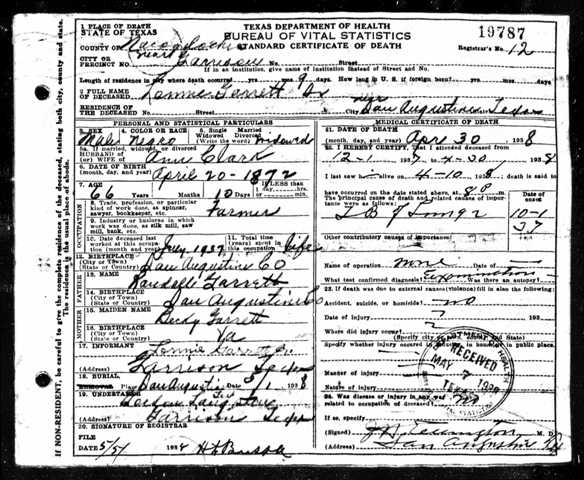 TEXAS DEPARTMENT OF HEALTH
BUREAU OF VITAL STATISTICS
STANDARD CERTIFICATE OF DEATH
19787
Registrar's No. 12
1 PLACE OF DEATH
STATE OF TEXAS
COUNTY OF Nacogdoches
CITY OR PRECINCT NO. near Garrison No. Street
If in an institution, give name of institution instead of Street and No.
Length of residence in city where death occurred mos. How long in U. S. if foreign born?
2 FULL NAME OF DECEASED Lonnie Garrett Sr
RESIDENCE OF THE DECEASED Street No. City San Augustine Texas
PERSONAL AND STATISTICAL PARTICULARS
3. SEX Male 4. COLOR OR RACE Negro 5. Single Married Widowed Divorced (Write the word) widowed
If married, widowed, or divorced HUSBAND OF (or) WIFE OF Ann Clark
6. DATE OF BIRTH (month, day, and year) April 20-1872
7. AGE 66 Years Months 10 Days If less than 1 day
OCCUPATION
8 Trade, profession, or particular kind of work done, as spinner, sawyer, bookkeeper, etc. Farmer
9. Industry or business in which work was done, as silk mill, saw mill, bank, etc.
10. Date deceased last worked at this occupation (month and year) July 1937 11. Total time (years) spent in this occupation life
12. BIRTHPLACE (City or Town) (State or Country) San Augustine Co
FATHER
13. NAME Garrett
14. BIRTHPLACE (City or Town) (State or Country) San Augustine Co
MOTHER
15. MAIDEN NAME Becky Garrett
16. BIRTHPLACE (City or Town) (State or Country) Va
17. INFORMANT Lonnie Garrett Jr.
(Address) Garrison Texas
18. BURIAL Place San Augustine Date 1938
19. UNDERTAKER
(Address) Garrison Tex
20. SIGNATURE OF REGISTRAR
FILE DATE 5/5/ 1938
MEDICAL CERTIFICATE OF DEATH
21. DATE OF DEATH (month, day, and year) Apr 30 1938
22. I HEREBY CERTIFY, that I attended deceased from 12-1 1937, to 4-30 1938
I last saw h alive on 4-10 1938 death is said to have occurred on the date stated above, at 8 P m.
The principal cause of death and related causes of importance were as follows: Date of onset
T B of Lungs 10-1 37
Other contributory causes of importance:
Name of operation none
What test confirmed diagnosis? Examination Was there an autopsy?
23. If death was due to external causes (violence) fill in also the following:
Accident, suicide, or homicide? no
Date of injury 193
Where did injury occur?
Specify whether injury occurred in
Manner of injury
Nature of injury
24. Was disease or injury in any way related to occupation of deceased? no
If so, specify
(Signed) M. D.
(Address) San Augustine Tex
DEPARTMENT OF HEALTH
RECEIVED
MAY 7 1938
IF NON-RESIDENT, be careful to give the complete residence of the deceased, stating both city, county and state. The residence is the usual place of abode.